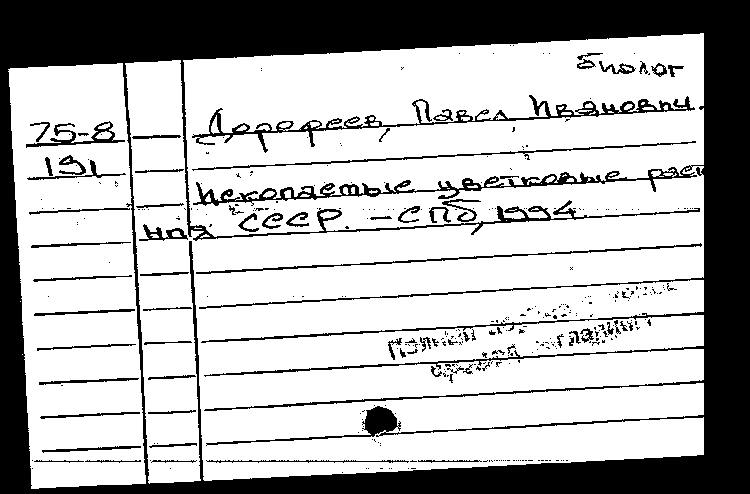 биолог
75-8 Дорофеев, Павел Иванович.
191
Ископаемые цветковые раст
ния СССР. - СПб, 1994
Полный